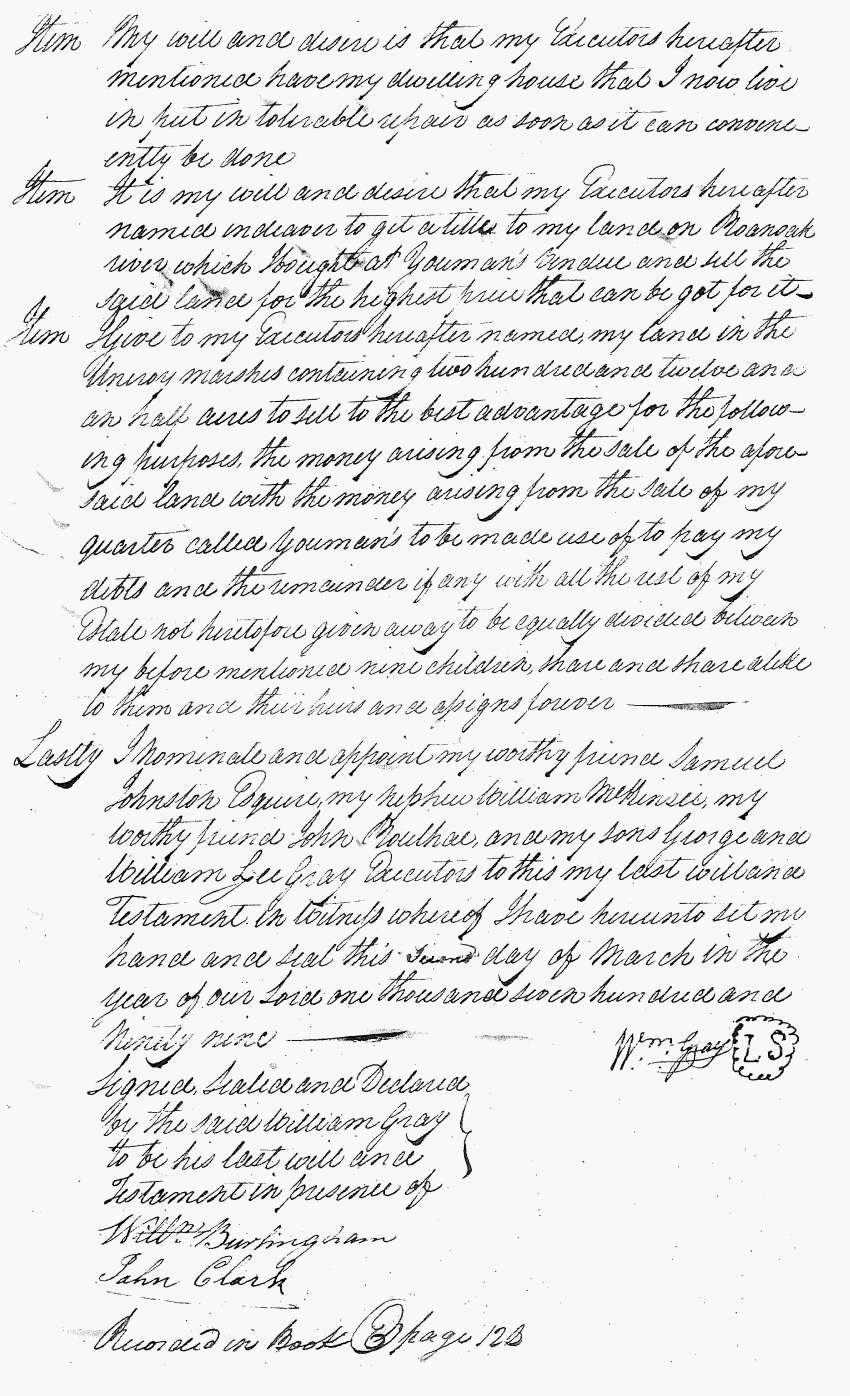 Item My will and desire is that my Executors hereafter
mentioned have my dwelling house that I now live
in put in tolerable repair as soon as it can conveni-
ently be done
Item It is my will and desire that my Executors hereafter
named indeaver to get a title to my land on Roanoak
river which I bought at Youman's Vendue and sell the
said land for the highest price that can be got for it
Item I Give to my Executors hereafter named, my land in the
marshes containing two hundred and twelve and
an half acres to sell to the best advantage for the follow-
ing purposes, the money arising from the sale of the afore-
said land with the money arising from the sale of my
quarter called Youman's to be made use of to pay my
debts and the remainder if any with all the rest of my
Estate not heretofore given away to be equally divided between
my before mentioned nine children, share and share alike
to them and their heirs and assigns forever
Lastly I Nominate and appoint my worthy friend Samuel
Johnston Esquire, my nephew William McKinsee, my
worthy friend John Roulhac, and my sons George and
William Lee Gray Executors to this my last will and
Testament. In Witness whereof I have hereunto set my
hand and seal this Second day of March in the
year of our Lord one thousand seven hundred and
Ninety nine
Wm. Gray LS
Signed, Sealed and Declared
by the said William Gray
to be his last will and
Testament in presence of
Willm. Burlingham
John Clark
Recorded in Book B page 123